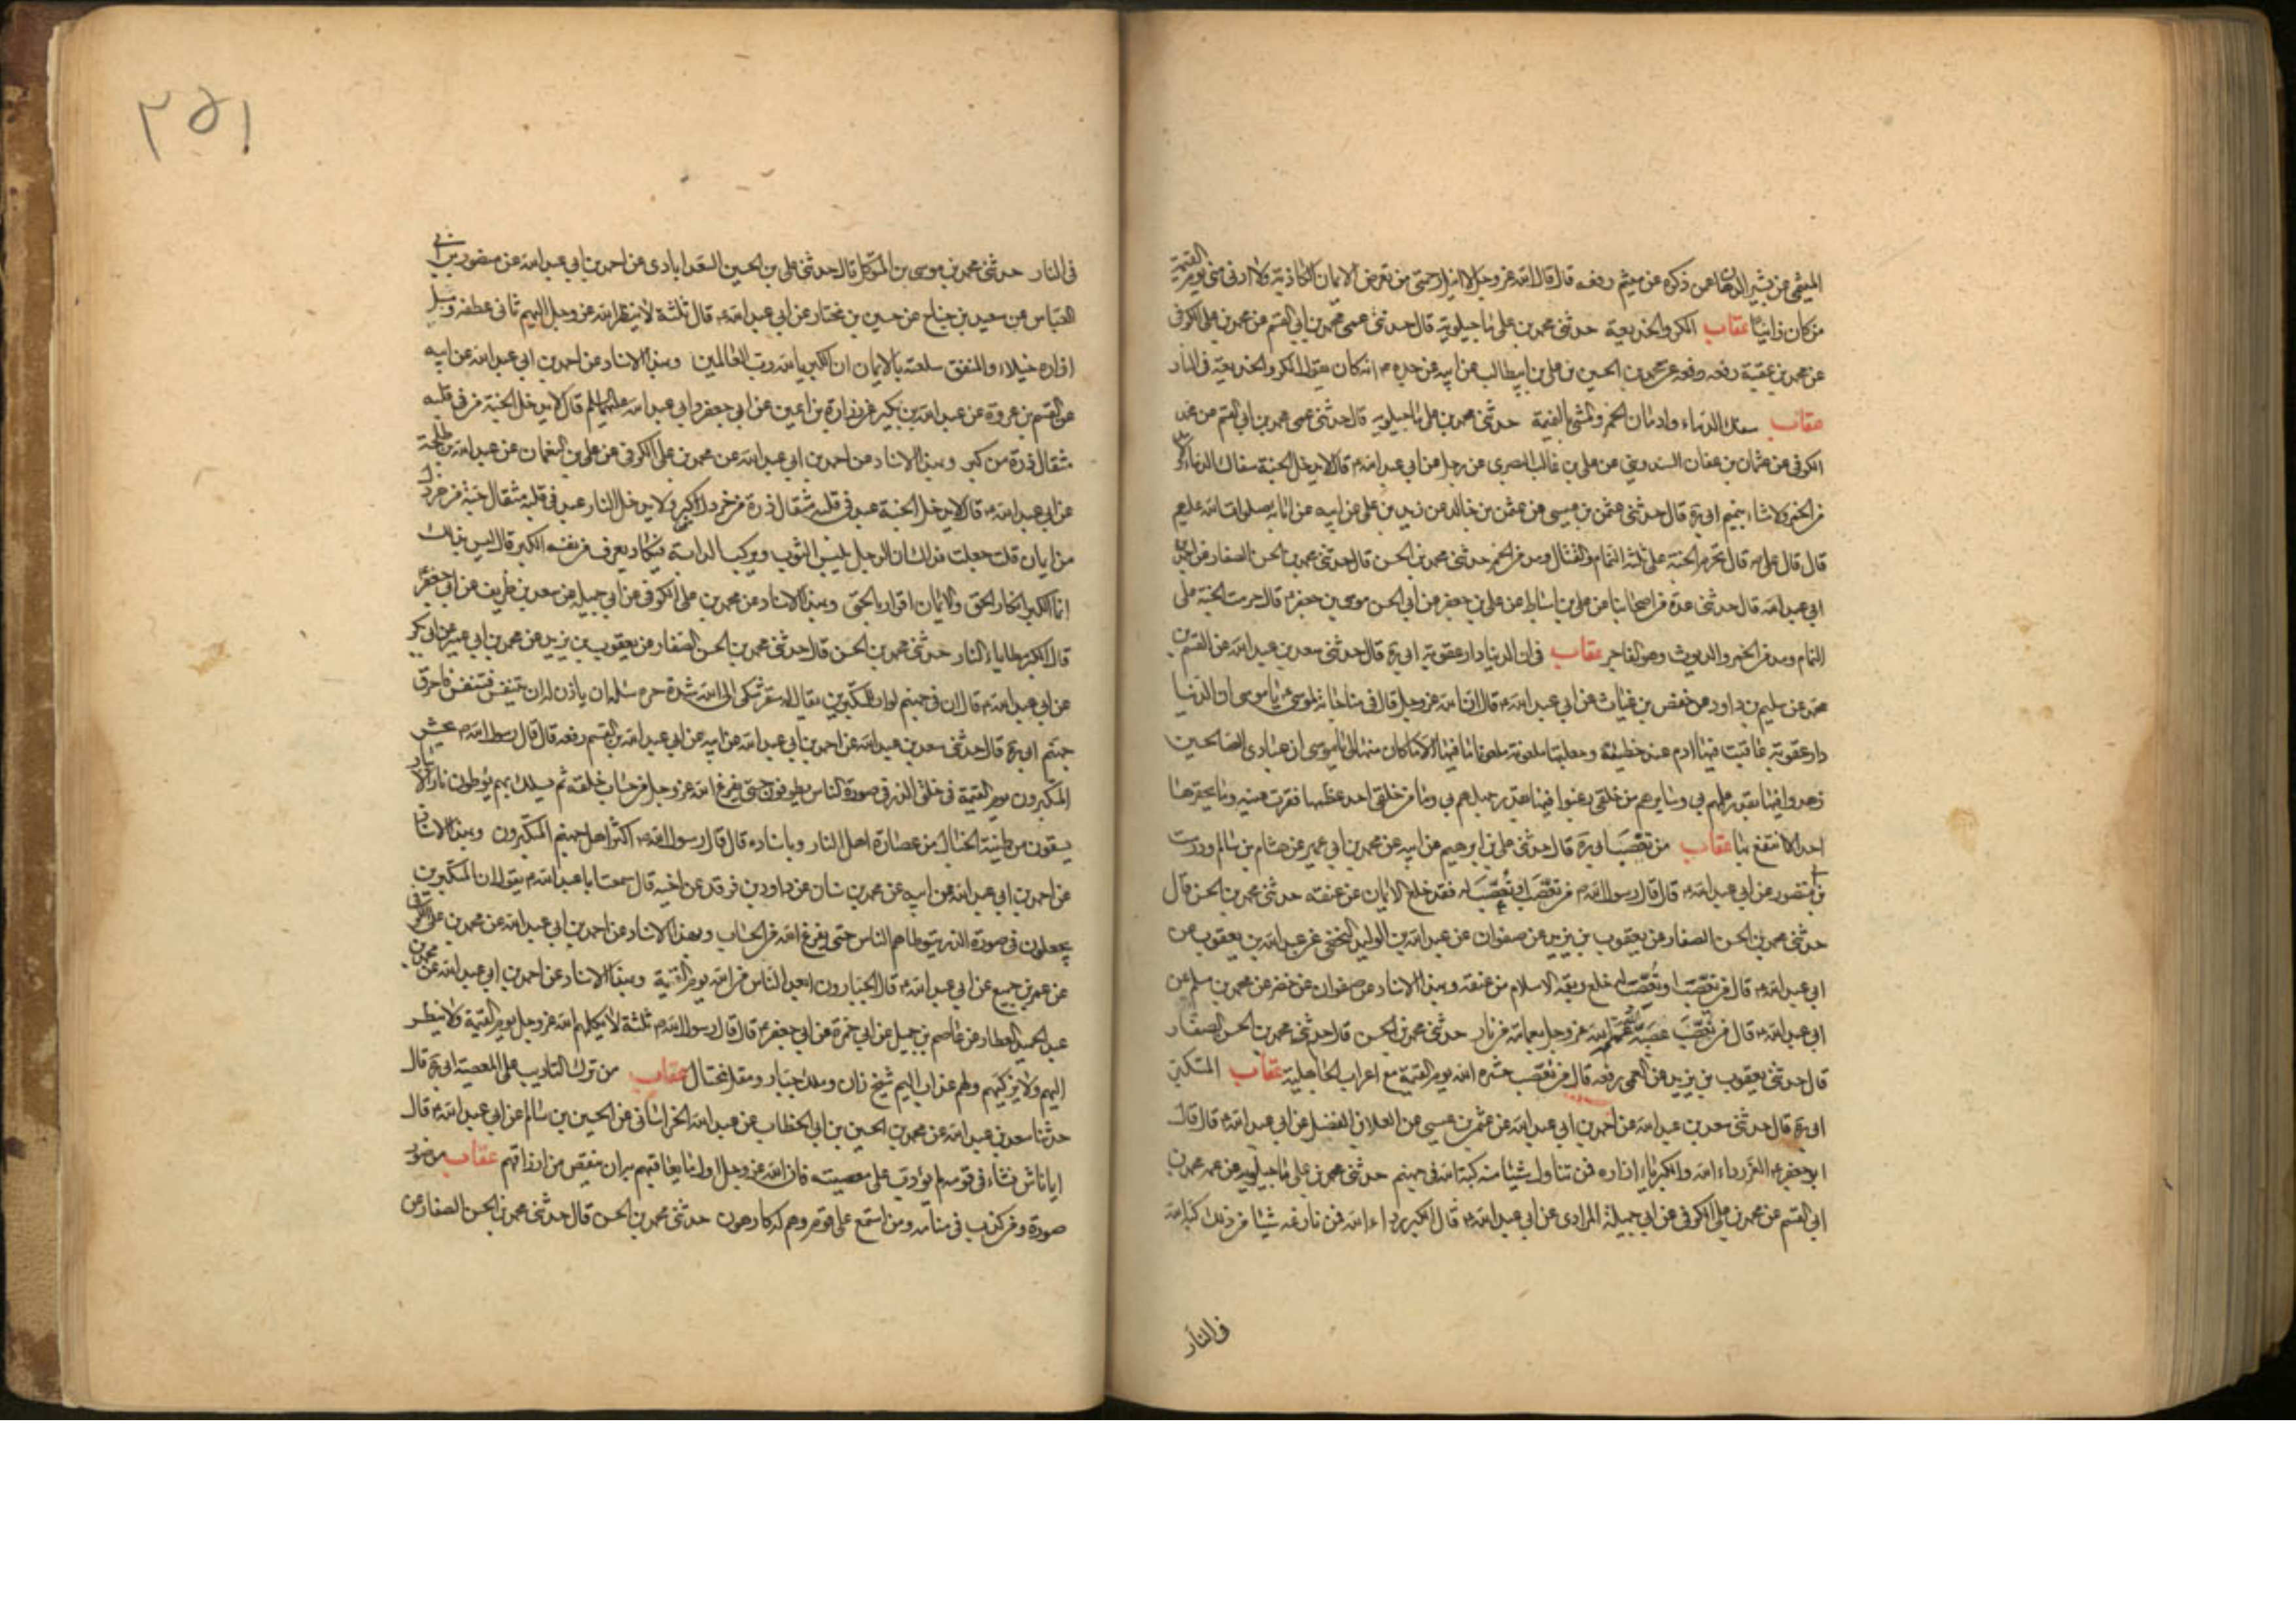 الميثمى عن بشير الدهان عمن ذكره عن ميثم رفعه قال قال الله عز وجل لا انيل رحمتى من تعرض للايمان الكاذبة ولا ادنى منى يوم القيمة
من كان زانيا عقاب المكر والخديعة حدثنى محمد بن على ماجيلويه قال حدثنى عمى محمد بن ابى القسم عن محمد بن على الكوفى
عن محمد بن عقبة رفعه عن محمد بن الحسين بن على بن ابيطالب عن ابيه عن جده انه كان يقول المكر والخديعة فى النار
عقاب سفك الدماء وادمان الخمر والمشى بالنميمة حدثنى محمد بن على ماجيلويه قال حدثنى عمى محمد بن ابى القسم عن محمد
الكوفى عن عثمان بن عفان السدوسى عن على بن غالب البصرى عن رجل عن ابى عبد الله قال لا يدخل الجنة سفاك الدماء ولا
مدمن الخمر ولا مشاء بنميم ابى ره قال حدثنى عثمن بن عيسى عن عثمن بن خالد عن زيد بن على عن ابيه عن ابائه صلوات الله عليهم
قال قال على قال تحرم الجنة على ثلثة النمام والقتال ومدمن الخمر حدثنى محمد بن الحسن قال حدثنى محمد بن الحسن الصفار عن احمد بن
ابى عبد الله قال حدثنى عدة من اصحابنا عن على بن اسباط عن على بن جعفر عن ابى الحسن موسى بن جعفر قال حرمت الجنة على
النمام ومدمن الخمر والديوث وهو الفاجر عقاب فى ان الدنيا دار عقوبة ابى ره قال حدثنى سعد بن عبد الله عن القسم بن
محمد عن سليم بن داود عن حفص بن غياث عن ابى عبد الله قال ان الله عز وجل قال فى مناجاته لموسى يا موسى ان الدنيا
دار عقوبة عاقبت فيها ادم عند خطيئة وجعلتها ملعونة ملعونا ما فيها الا ما كان منها لى يا موسى ان عبادى الصالحين
زهدوا فيها بقدر علمهم بى وسايرهم من خلقى رغبوا فيها بقدر جهلهم بى وما من خلقى احد عظمها فقرت عينه وما يحقرها
احد الا انتفع بها عقاب من تعصب ابى ره قال حدثنى على بن ابرهيم عن ابيه عن محمد بن ابى عمير عن هشام بن سالم ودرست
بن منصور عن ابى عبد الله قال قال رسول الله من تعصب او تعصب له فقد خلع الايمان عن عنقه حدثنى محمد بن الحسن قال
حدثنى محمد بن الحسن الصفار عن يعقوب بن يزيد عن صفوان عن عبد الله بن الوليد النخعى عن عبد الله بن يعقوب عن
ابى عبد الله قال من تعصب او تعصب له خلع ربقة الاسلام من عنقه وبهذا الاسناد عن صفوان عن خضر عن محمد بن مسلم عن
ابى عبد الله قال من تعصب عصبه الله عز وجل بعمامة من نار حدثنى محمد بن الحسن قال حدثنى محمد بن الحسن الصفار
قال حدثنى يعقوب بن يزيد عن العمى رفعه قال من تعصب حشره الله يوم القيمة مع اعراب الجاهلية عقاب المتكبر
ابى ره قال حدثنى سعد بن عبد الله عن احمد بن ابى عبد الله عن عثمن بن عيسى عن العلا بن الفضل عن ابى عبد الله قال قال
ابو جعفر العز رداء الله والكبرياء ازاره فمن تناول شيئا منه كبه الله فى جهنم حدثنى محمد بن على ماجيلويه عن عمه محمد بن
ابى القسم عن محمد بن على الكوفى عن ابى جميلة المرادى عن ابى عبد الله قال الكبر رداء الله فمن نازعه شيئا من ذلك كبه الله
فى النار
٢٥١
فى النار حدثنى محمد بن موسى بن المتوكل قال حدثنى على بن الحسين السعدابادى عن احمد بن ابى عبد الله عن منصور بن
العباس عن سعيد بن جناح عن حسين بن مختار عن ابى عبد الله قال ثلثة لا ينظر الله عز وجل اليهم ثانى عطفه ومسبل
ازاره خيلاء والمنفق سلعته بالايمان ان الكبرياء لله رب العالمين وبهذا الاسناد عن احمد بن ابى عبد الله عن ابيه
عن القسم بن عروة عن عبد الله بن بكير عن زرارة بن اعين عن ابى جعفر وابى عبد الله عليهما السلم قال لا يدخل الجنة من فى قلبه
مثقال ذرة من كبر وبهذا الاسناد عن احمد بن ابى عبد الله عن محمد بن على الكوفى عن على بن النعمان عن عبد الله بن طلحة
عن ابى عبد الله قال لا يدخل الجنة عبد فى قلبه مثقال ذرة من خردل من كبر ولا يدخل النار عبد فى قلبه مثقال حبة من خردل
من ايمان قلت جعلت فداك ان الرجل يلبس الثوب ويركب الدابة فيكاد يعرف من نفسه الكبر قال ليس بذلك
انما الكبر انكار الحق والايمان اقرار بالحق وبهذا الاسناد عن محمد بن على الكوفى عن ابى جميلة عن سعد بن طريف عن ابى جعفر
قال الكبر مطايا النار حدثنى محمد بن الحسن قال حدثنى محمد بن الحسن الصفار عن يعقوب بن يزيد عن محمد بن ابى عمير عن ابن بكير
عن ابى عبد الله قال ان فى جهنم لواد للمتكبرين يقال له سقر شكى الى الله شدة حره سئله ان ياذن له ان يتنفس فتنفس فاحرق
جهنم ابى ره قال حدثنى سعد بن عبد الله عن احمد بن ابى عبد الله عن ابيه عن ابى عبد الله بن القسم رفعه قال قال رسول الله يحشر
المتكبرون يوم القيمة فى خلق الذر فى صورة الناس يوطون حتى يفرغ الله عز وجل من حساب خلقه ثم يسلك بهم يوطون نار الانيار
يسقون من طينة الخبال من عصارة اهل النار وباسناده قال قال رسول الله اكثر اهل جهنم المتكبرون وبهذا الاسناد
عن احمد بن ابى عبد الله عن ابيه عن محمد بن سنان عن داود بن فرقد عن اخيه قال سمعت ابا عبد الله يقول ان المتكبرين
يجعلون فى صورة الذر يتوطاهم الناس حتى يفرغ الله من الحساب وبهذا الاسناد عن احمد بن ابى عبد الله عن محمد بن على الكوفى
عن عمر بن جميع عن ابى عبد الله قال الجبارون ابعد الناس من الله يوم القيمة وبهذا الاسناد عن احمد بن ابى عبد الله عن محمد بن
عبد الحميد العطار عن عاصم بن حميد عن ابى حمزة عن ابى جعفر قال قال رسول الله ثلثة لا يكلمهم الله عز وجل يوم القيمة ولا ينظر
اليهم ولا يزكيهم ولهم عذاب اليم شيخ زان وملك جبار ومقل مختال عقاب من ترك التاديب على المعصية ابى ره قال
حدثنا سعد بن عبد الله عن محمد بن الحسين بن ابى الخطاب عن عبد الله الخراسانى عن الحسين بن سالم عن ابى عبد الله قال
ايما ناش نشاء فى قومه لم يؤدب على معصيته فان الله عز وجل اول ما يعاقبهم به ان ينقص من ارزاقهم عقاب من صور
صورة ومن كذب فى منامه ومن استمع على قوم وهم له كارهون حدثنى محمد بن الحسن قال حدثنى محمد بن الحسن الصفار عن